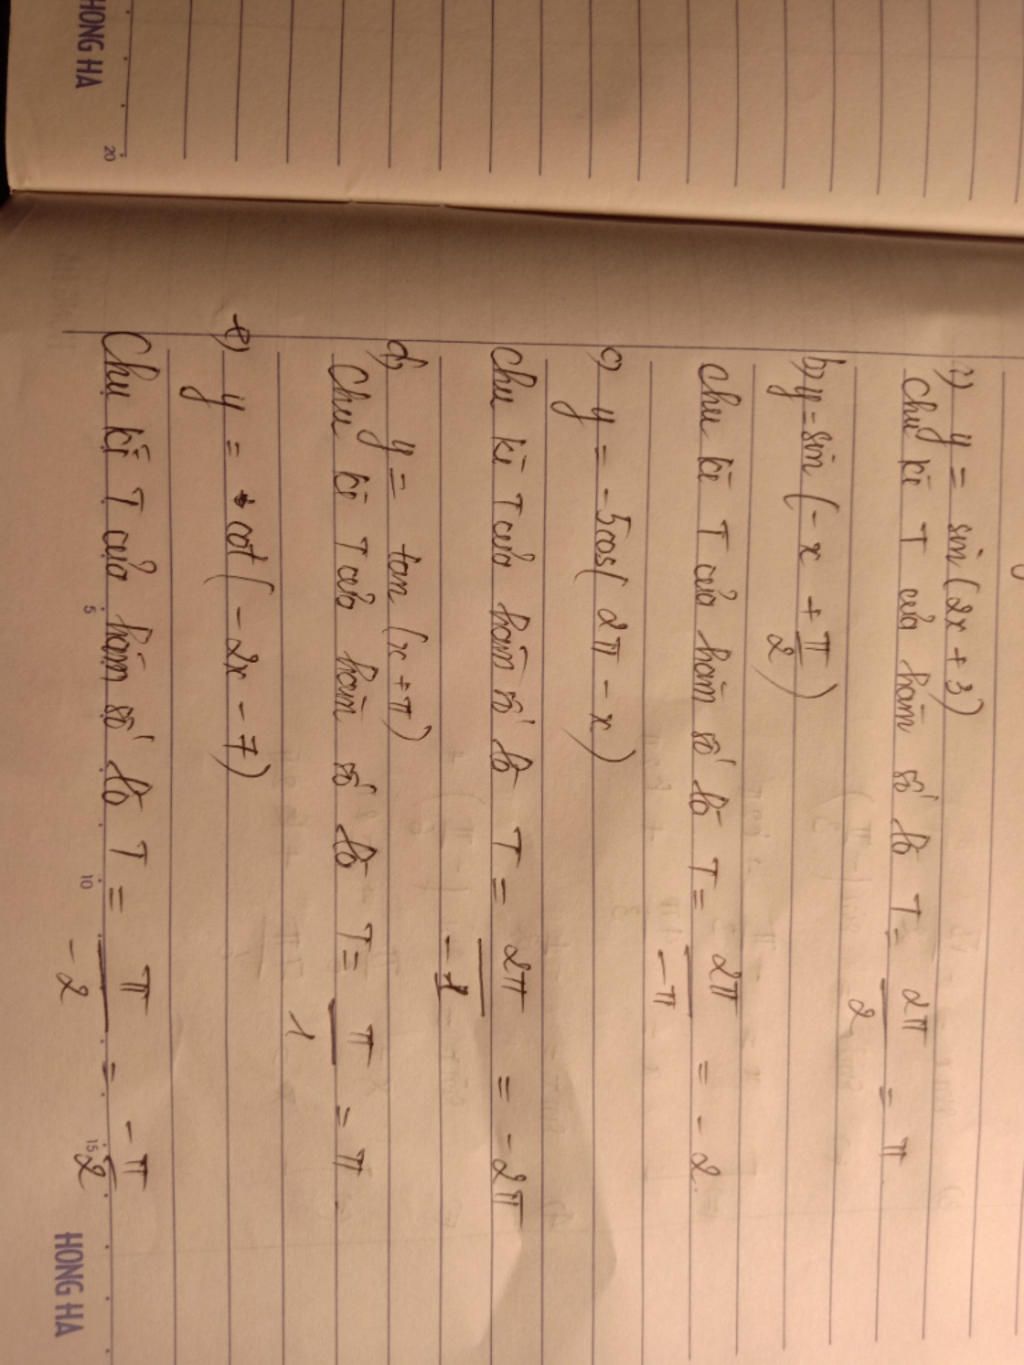 HONG HA
20
a) y = sin(2x + 3)
chu kì T của hàm số là T = 2π/2 = π
b) y = sin(-x + π/2)
chu kì T của hàm số là T = 2π/-π = -2.
c) y = -5cos(2π - x)
chu kì T của hàm số là T = 2π/-1 = -2π
d) y = tan(x + π)
chu kì T của hàm số là T = π/1 = π.
e) y = cot(-2x - 7)
Chu kì T của hàm số là T = π/-2 = -π/2
5 10 15 HONG HA